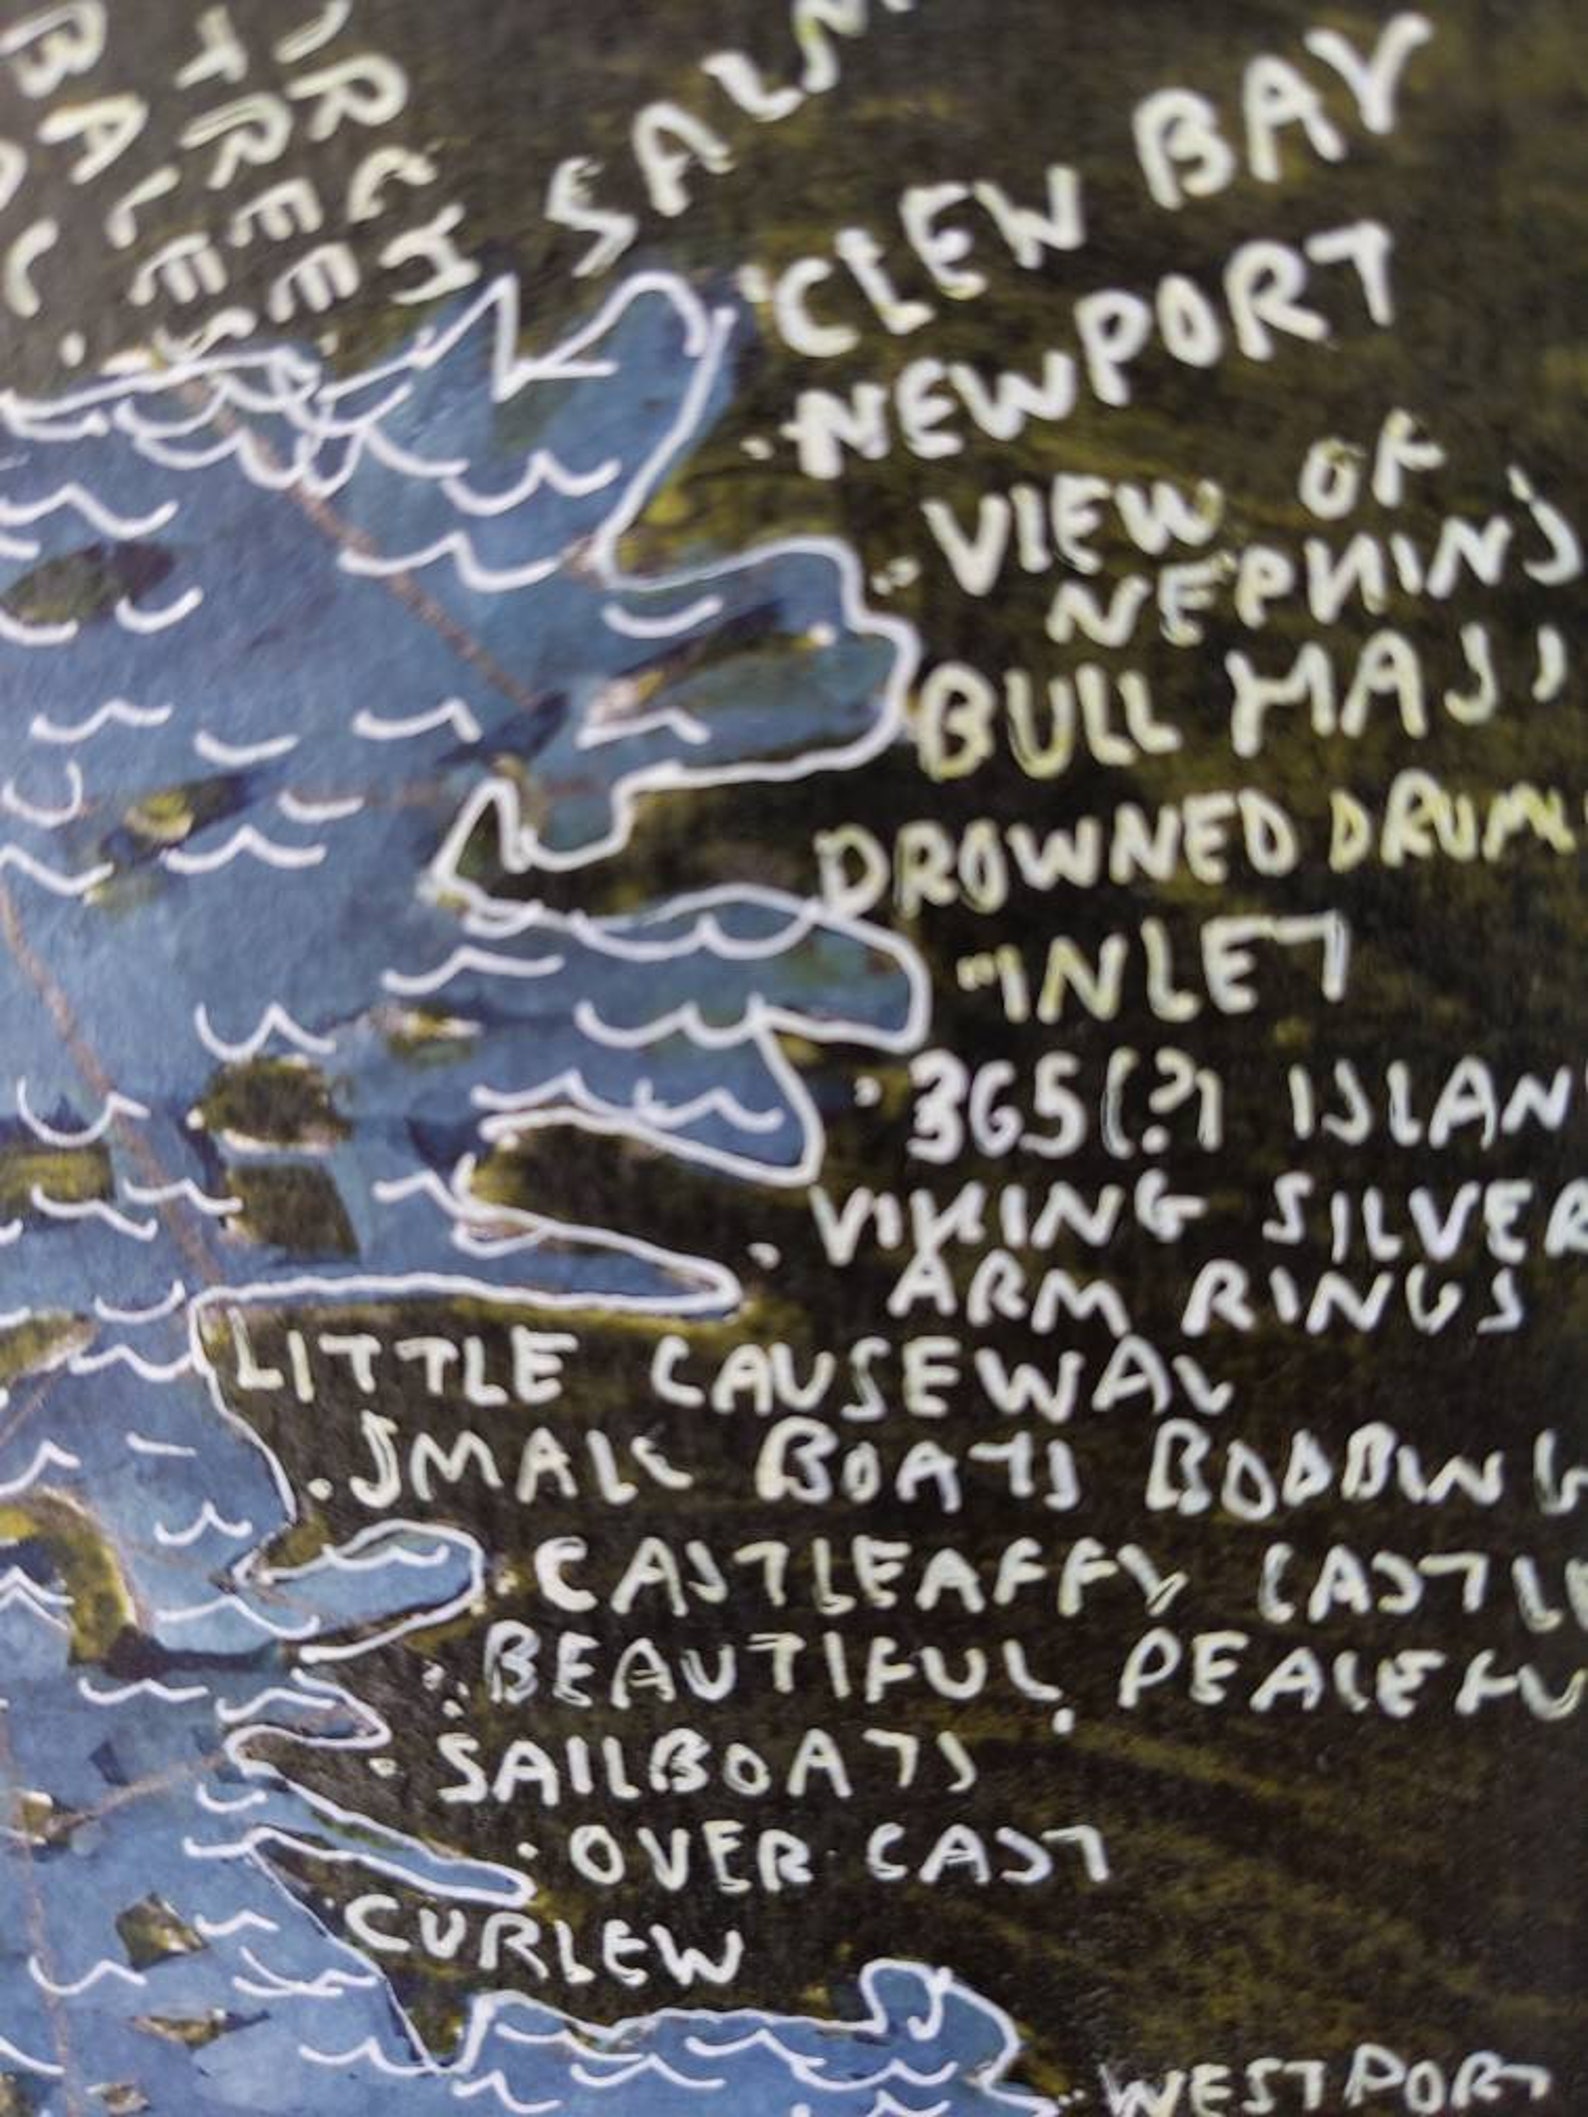 TREE
BALES
SALM
CLEW BAY
NEWPORT
VIEW OF
NEPHINS
BULL MASS
DROWNED DRUM
INLET
365(?) ISLAN
VIKING SILVER
ARM RINGS
LITTLE CAUSEWAY
SMALL BOATS BOBBING
CASTLEAFFY CASTLE
BEAUTIFUL, PEACEFU
SAILBOATS
OVERCAST
CURLEW
WESTPORT